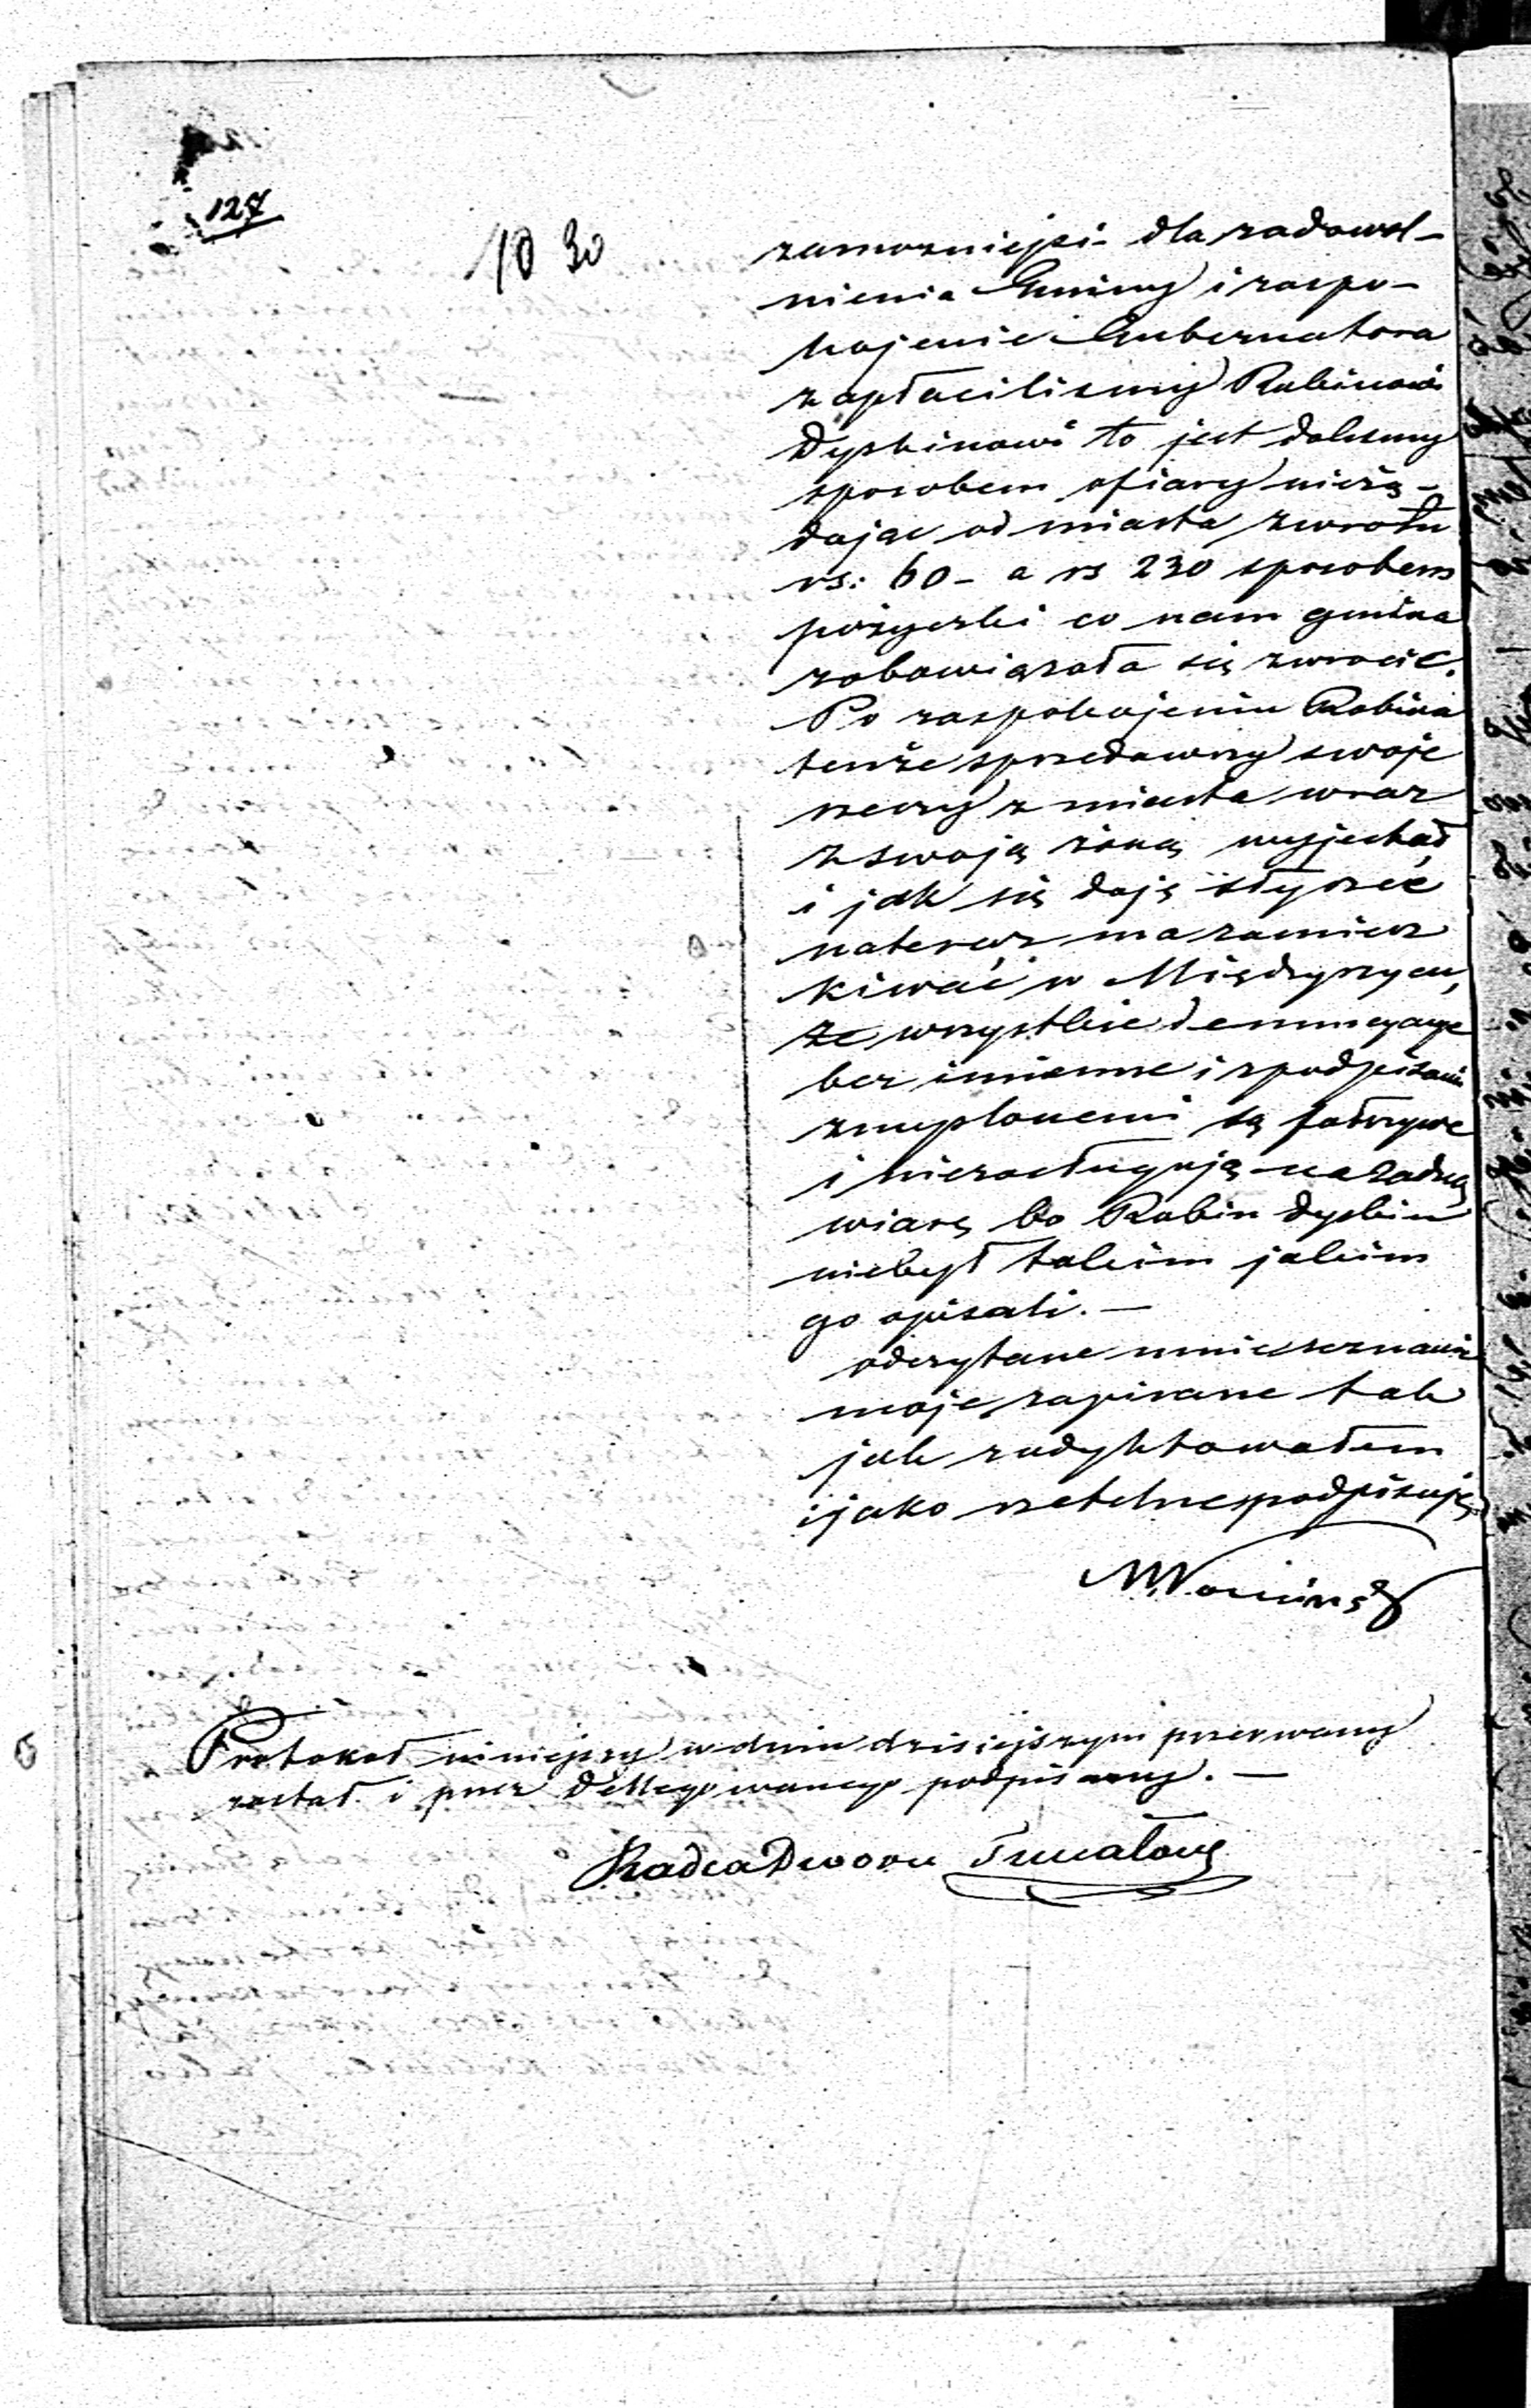 128
10 30
zamozniejsi dla zadowol-
nienia Gminy i zaspo-
kojenie Gubernatora
zapłacilismy Rubinowi
Dyskinowi to jest daliśmy
sposobem ofiary nieżą-
dając od miasta zwrotu
rs: 60 - a rs 230 sposobem
pożyczki co nam gmina
zobowiązała się zwrócić.
Po zaspokojeniu Rabina
tenże sprzedawszy swoje
rzeczy z miasta wraz
z swoją żoną wyjechał
i jak się daję słyszeć
nateraz ma zamiesz
kiwać w Międzyrzycu,
że wszystkie denuncyacye
bez imienne i z podpisami
zmyślonemi są fałszywe
i niezasługują na żadną
wiarę bo Rabin Dyskin
niebył takim jakim
go opisali. —
odczytane mnie zeznanie
moje, zapisane tak
jak zadyktowałem
i jako rzetelne podpisuję
Protokoł niniejszy w dniu dzisiejszym przerwany
został i przez Dellegowanego podpisany. —
Radca Dworu